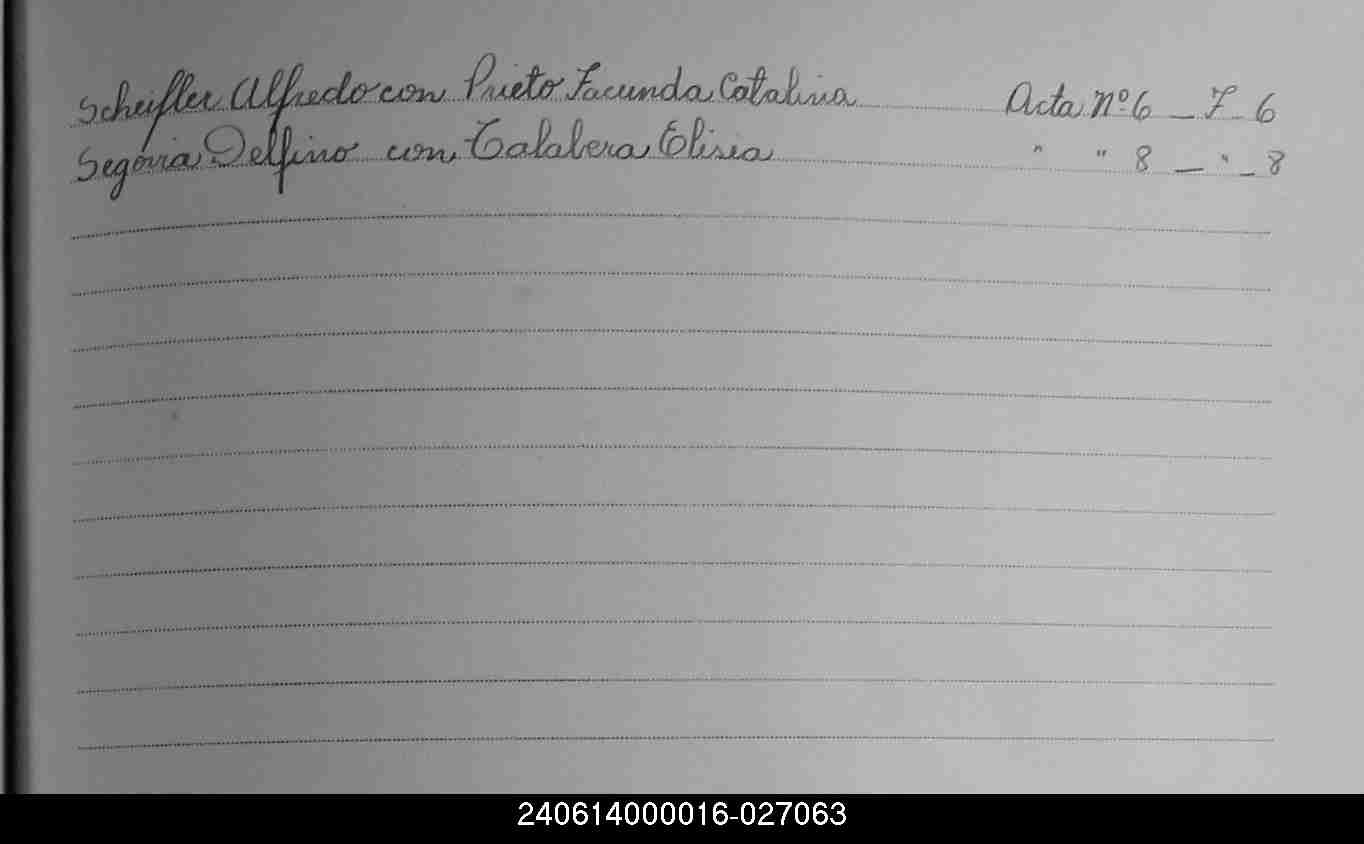 Scheifler Alfredo con Prieto Facunda Catalina Acta nº 6 _ F. 6
Segovia Delfino con Talabera Elisia " " 8 _ " _ 8
240614000016-027063